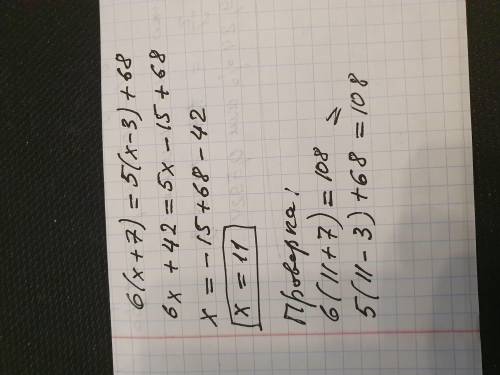 6(x+7)=5(x-3)+68
6x+42=5x-15+68
x=-15+68-42
x=11
Проверка!
6(11+7)=108 =>
5(11-3)+68=108